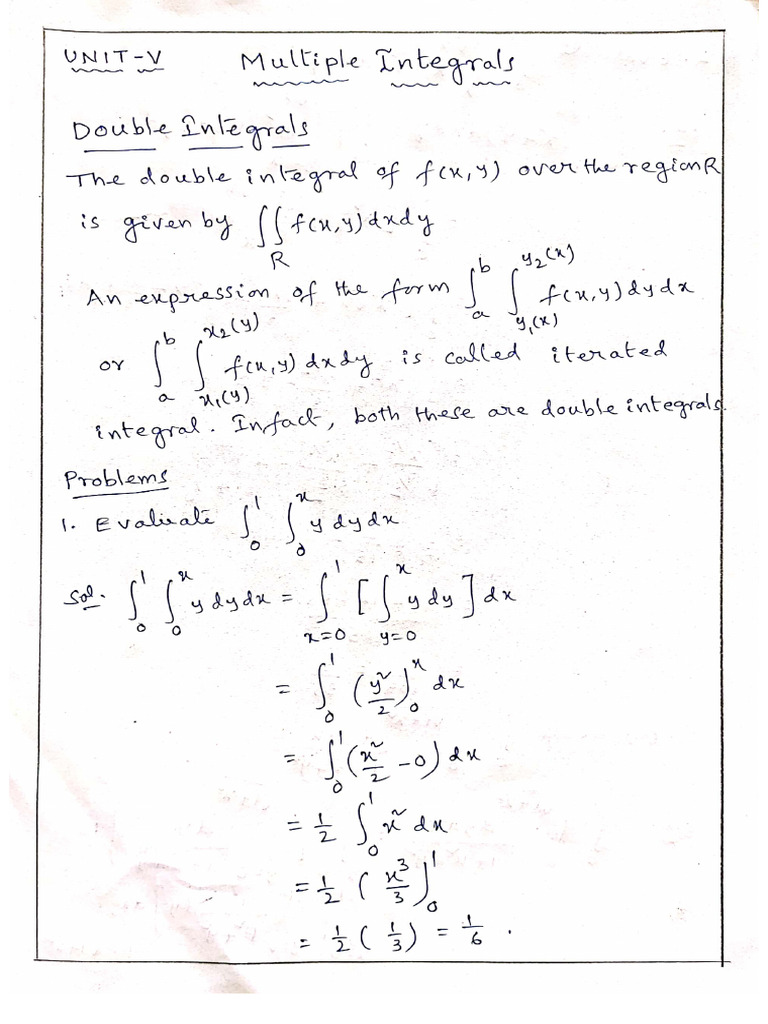 UNIT-V Multiple Integrals
Double Integrals
The double integral of f(x,y) over the region R
is given by ∬_R f(x,y) dx dy
An expression of the form ∫_a^b ∫_{y₁(x)}^{y₂(x)} f(x,y) dy dx
or ∫_a^b ∫_{x₁(y)}^{x₂(y)} f(x,y) dx dy is called iterated
integral. Infact, both these are double integrals.
Problems
1. Evaluate ∫_0^1 ∫_0^x y dy dx
Sol. ∫_0^1 ∫_0^x y dy dx = ∫_{x=0}^1 [∫_{y=0}^x y dy] dx
= ∫_0^1 (y²/2)_0^x dx
= ∫_0^1 (x²/2 - 0) dx
= 1/2 ∫_0^1 x² dx
= 1/2 (x³/3)_0^1
= 1/2 (1/3) = 1/6 .